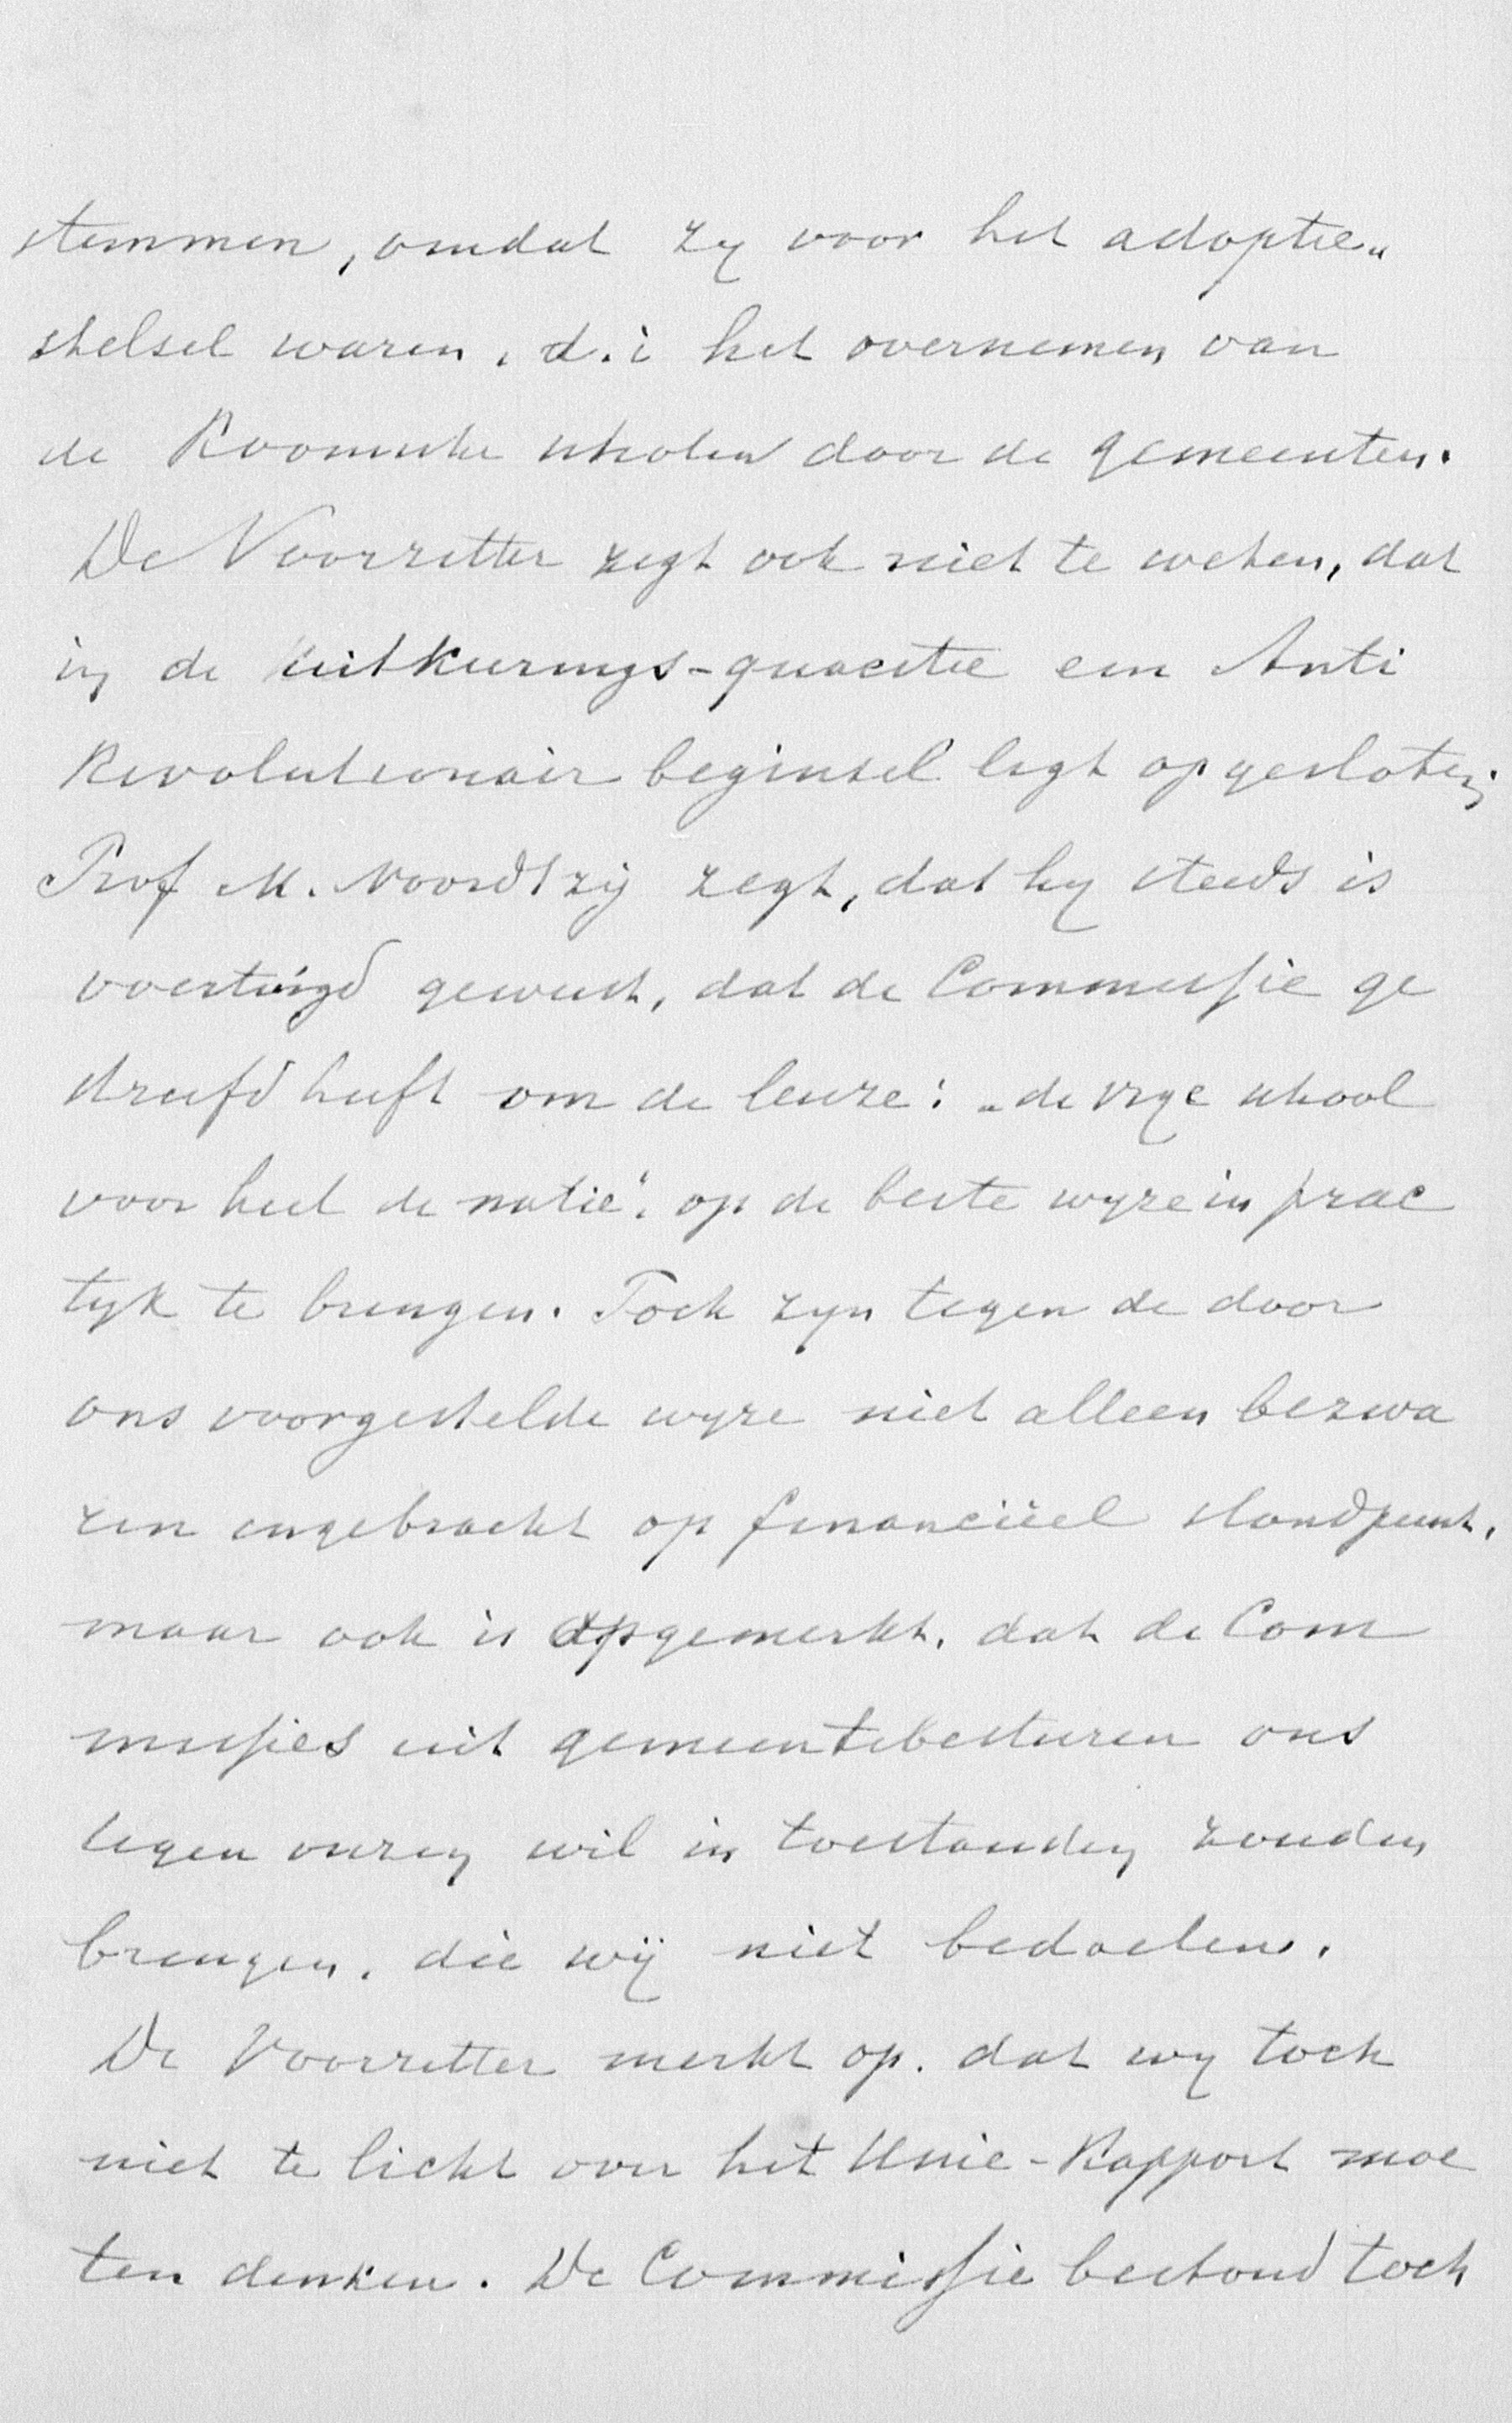 stemmen, omdat zy voor het adoptie„
stelsel waren, d.i het overnemen van
de Roomsche scholen door de gemeenten.
De Voorzitter zegt ook niet te weten, dat
in de uitkeerings-quaestie een Anti
Revolutionair beginsel ligt opgesloten.
Prof M. Noordtzij zegt, dat hy steeds is
overtuigd geweest, dat de Commissie ge
streefd heeft om de leuze: „de vrye school
voor heel de natie". op de beste wyze in prac
tyk te brengen. Toch zyn tegen de door
ons voorgestelde wyze niet alleen bezwa
ren ingebracht op financiëel standpunt,
maar ook is opgemerkt, dat de Com
missies uit gemeentebesturen ons
tegen onzen wil in toestanden zouden
brengen, die wij niet bedoelen.
De Voorzitter merkt op. dat wy toch
niet te licht over het Unie-Rapport moe
ten denken. De Commissie bestond toch